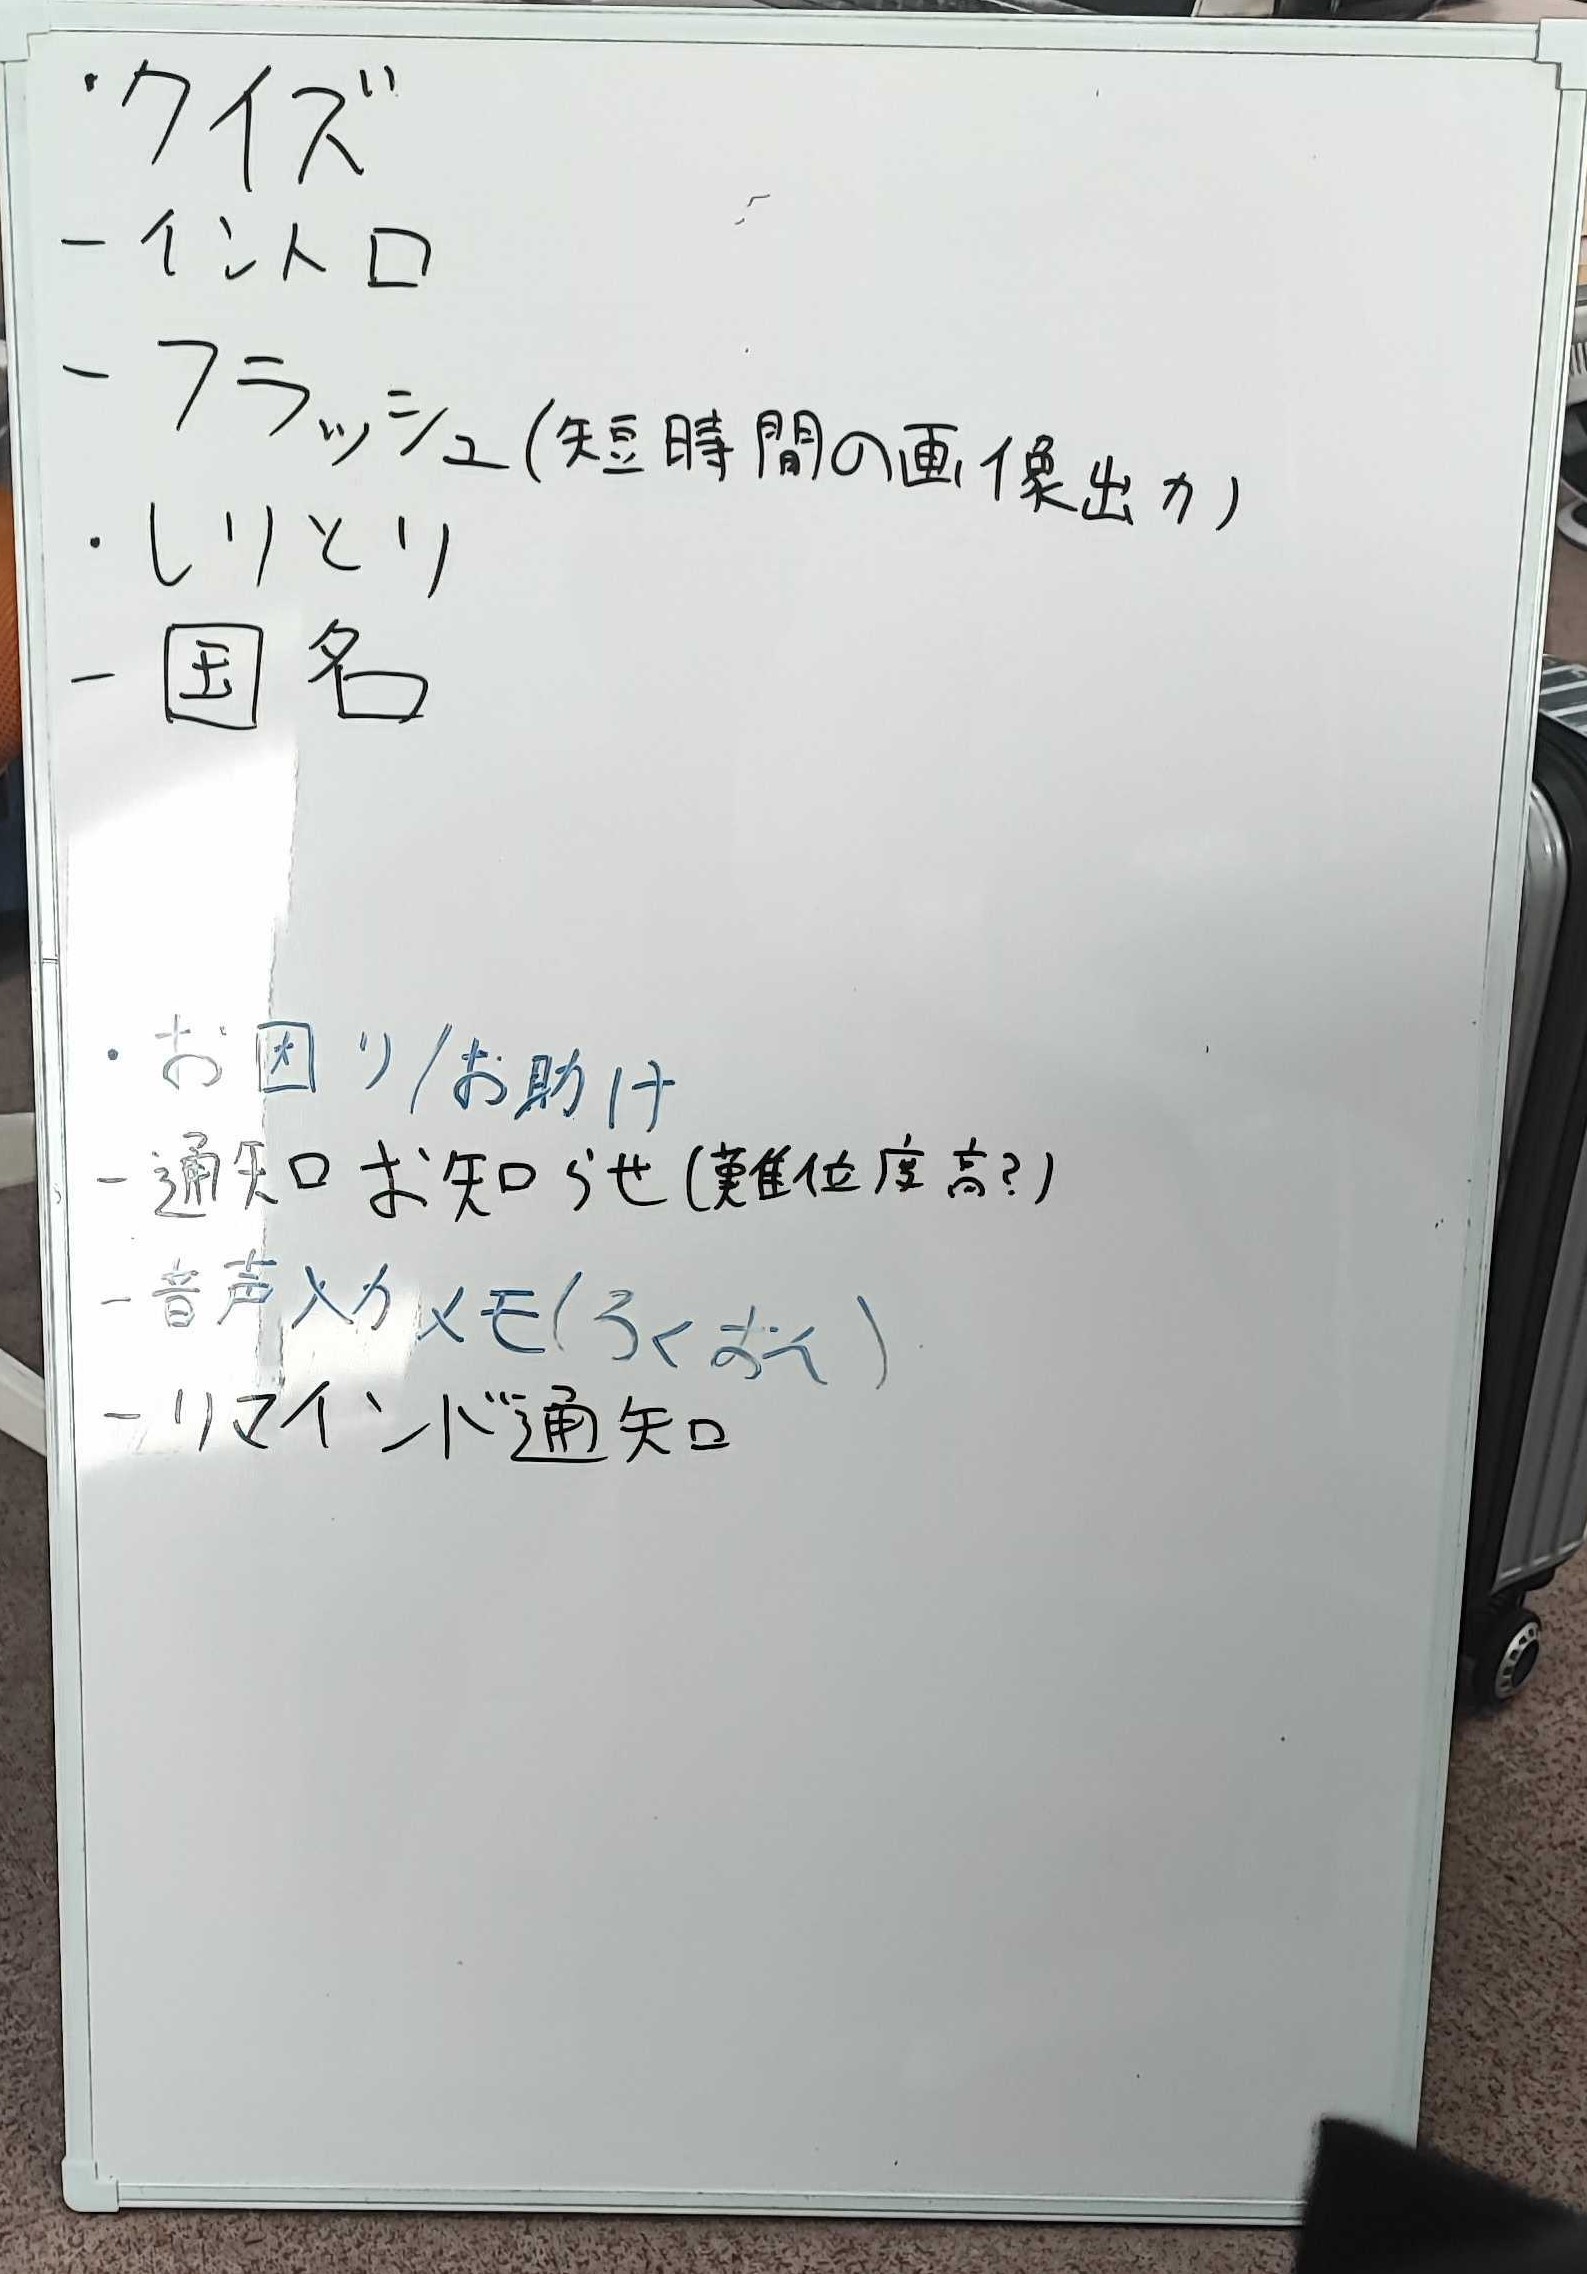 ・クイズ
- イントロ
- フラッシュ(短時間の画像出力)
・しりとり
- 国名
・お困り/お助け
- 通知お知らせ(難位度高?)
- 音声入力メモ(ろくおん)
- リマインド通知